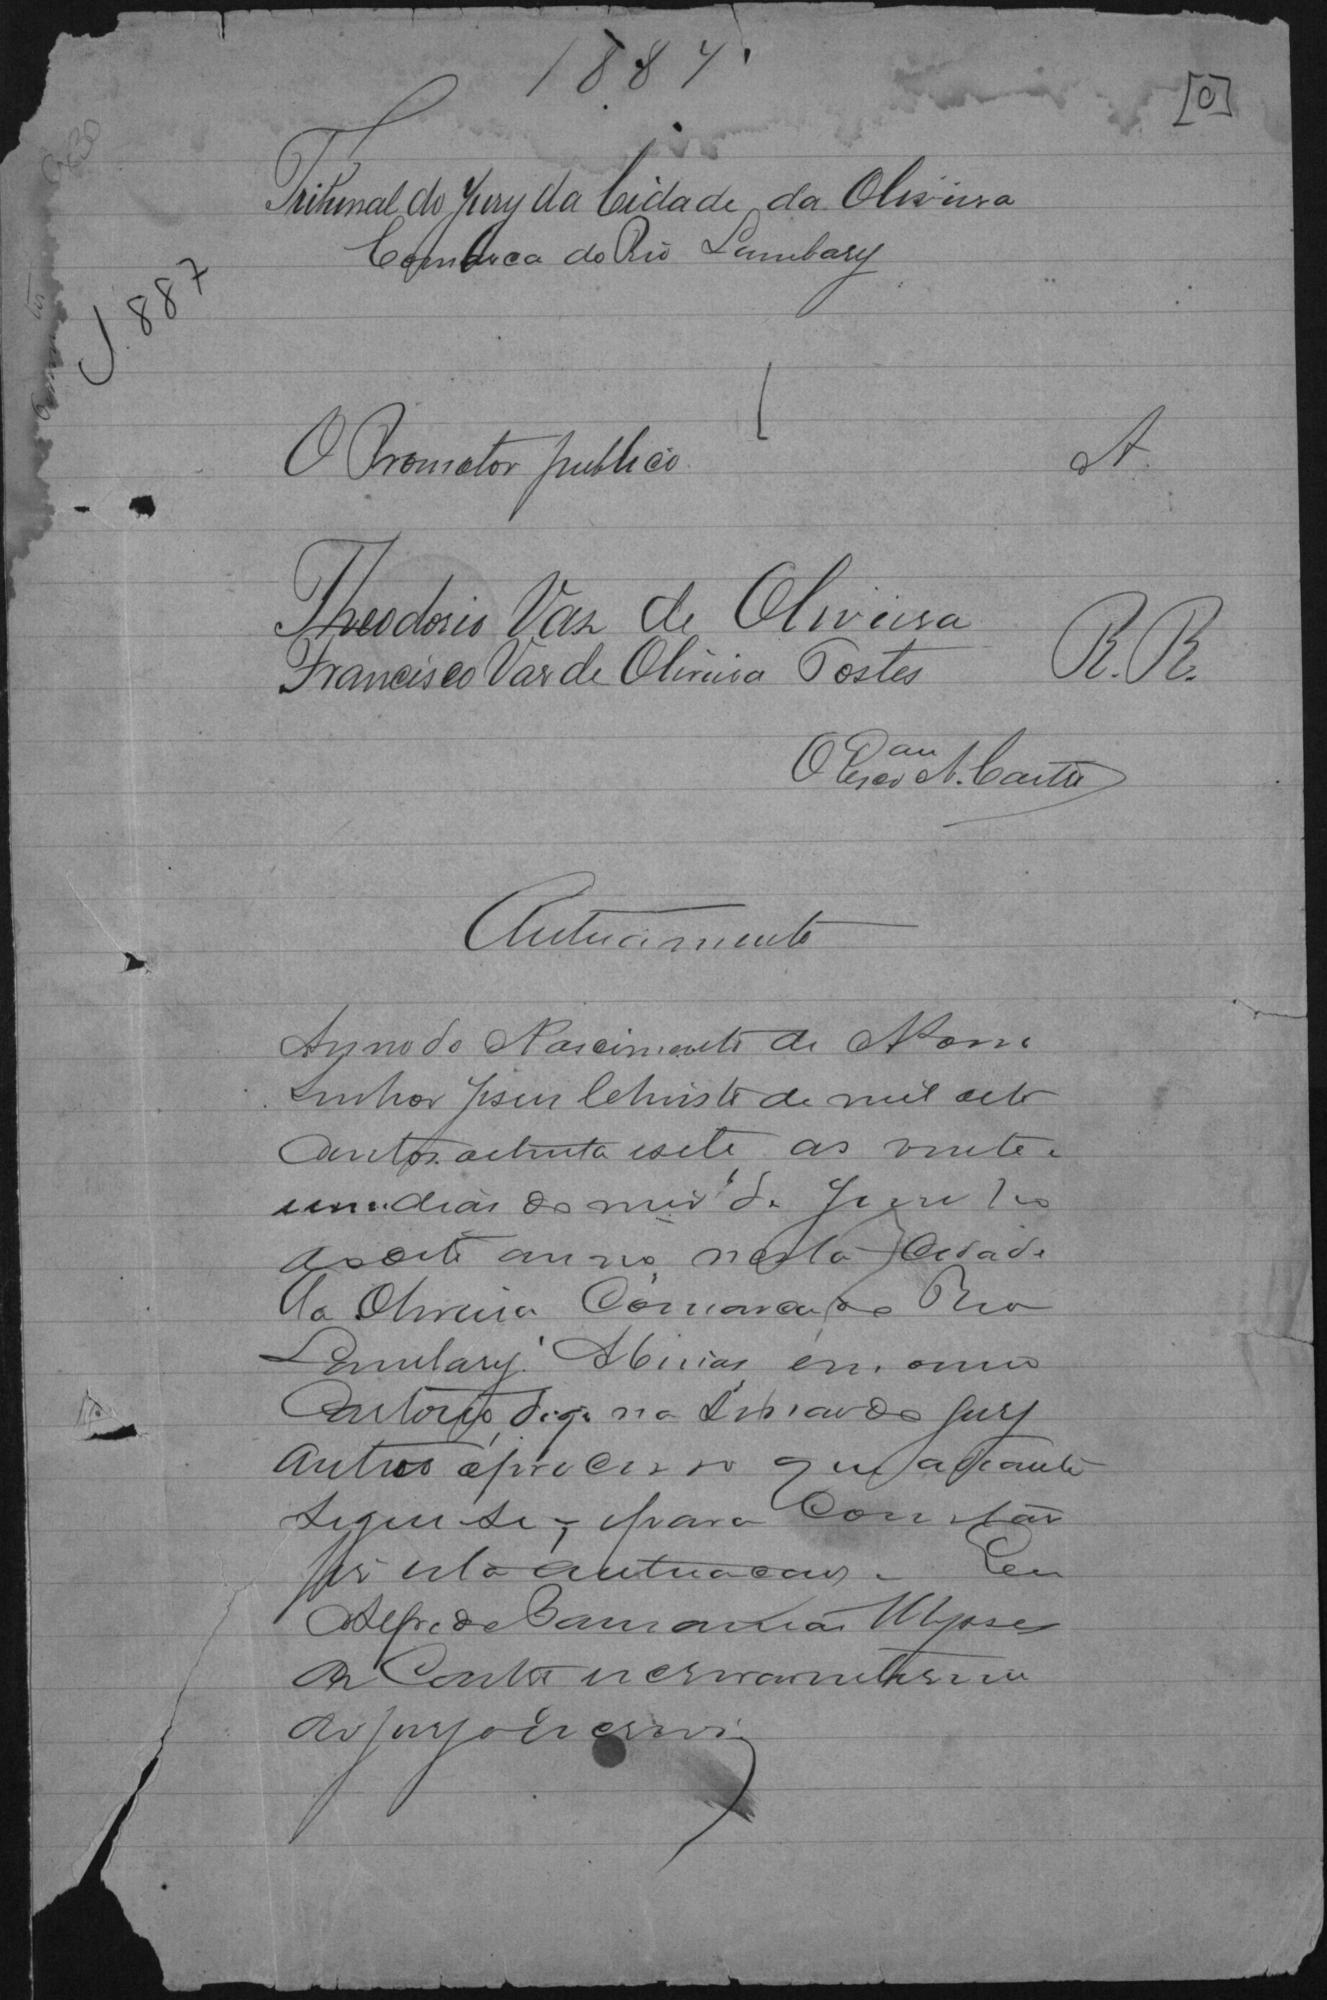 1887
[0]
Tribunal do Jury da Cidade da Oliveira
Comarca do Rio Lambary
J. 887
O Promotor publico A.
Theodorio Vaz de Oliveira
Francisco Vaz de Oliveira Tostes R. R.
O Escam N. Castro
Autuamento
Anno do Nascimento de Nosso
Senhor Jesus Christo de mil oito
centos oitenta e sete as vinte e
um dias do mez de Junho
do dito anno nesta Cidade
da Oliveira Comarca do Rio
Lambary Minas em meo
Cartorio, digo na do Jury
autuo o processo que adiante
segue-se, e para constar
fiz esta autuacam. Eu
Alfredo Ulysses
de Castro escrivam interino
do jury o escrevi